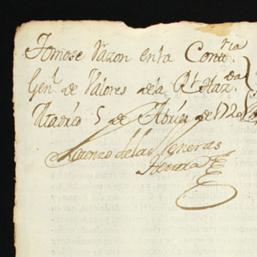 Tomose Razon en la Contt.ria
Gen.l de Valores de la R.l Haz.da
Madrid 5 de Abril de 172
Lorenzo de las Veneras
Herrera